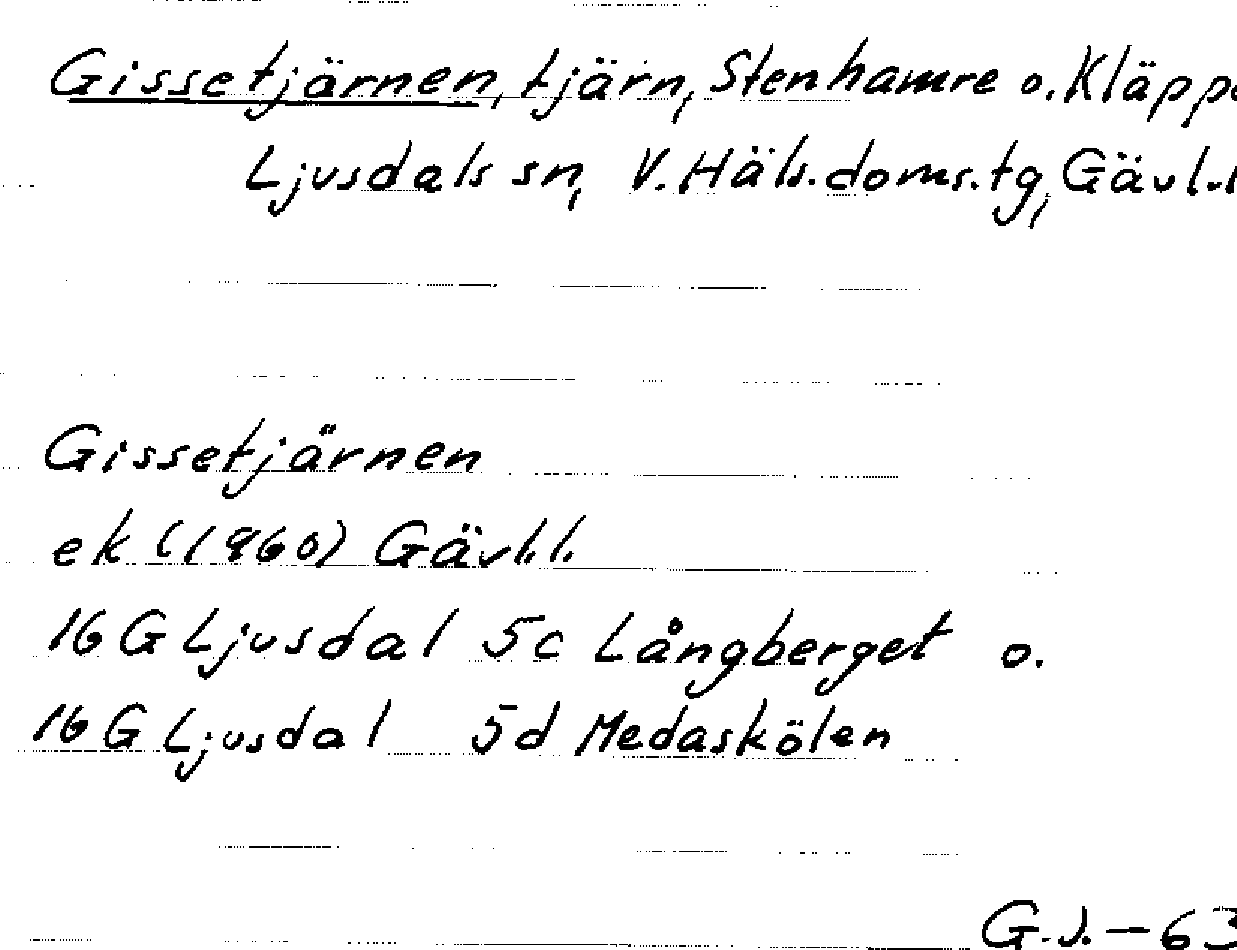 Gissetjärnen, tjärn, Stenhamre o. Kläpp
Ljusdals sn, V. Häls. doms. tg, Gävl.l
Gissetjärnen
ek (1960) Gävl.l.
16 G Ljusdal 5c Långberget o.
16 G Ljusdal 5d Medaskölen
G.J. – 63